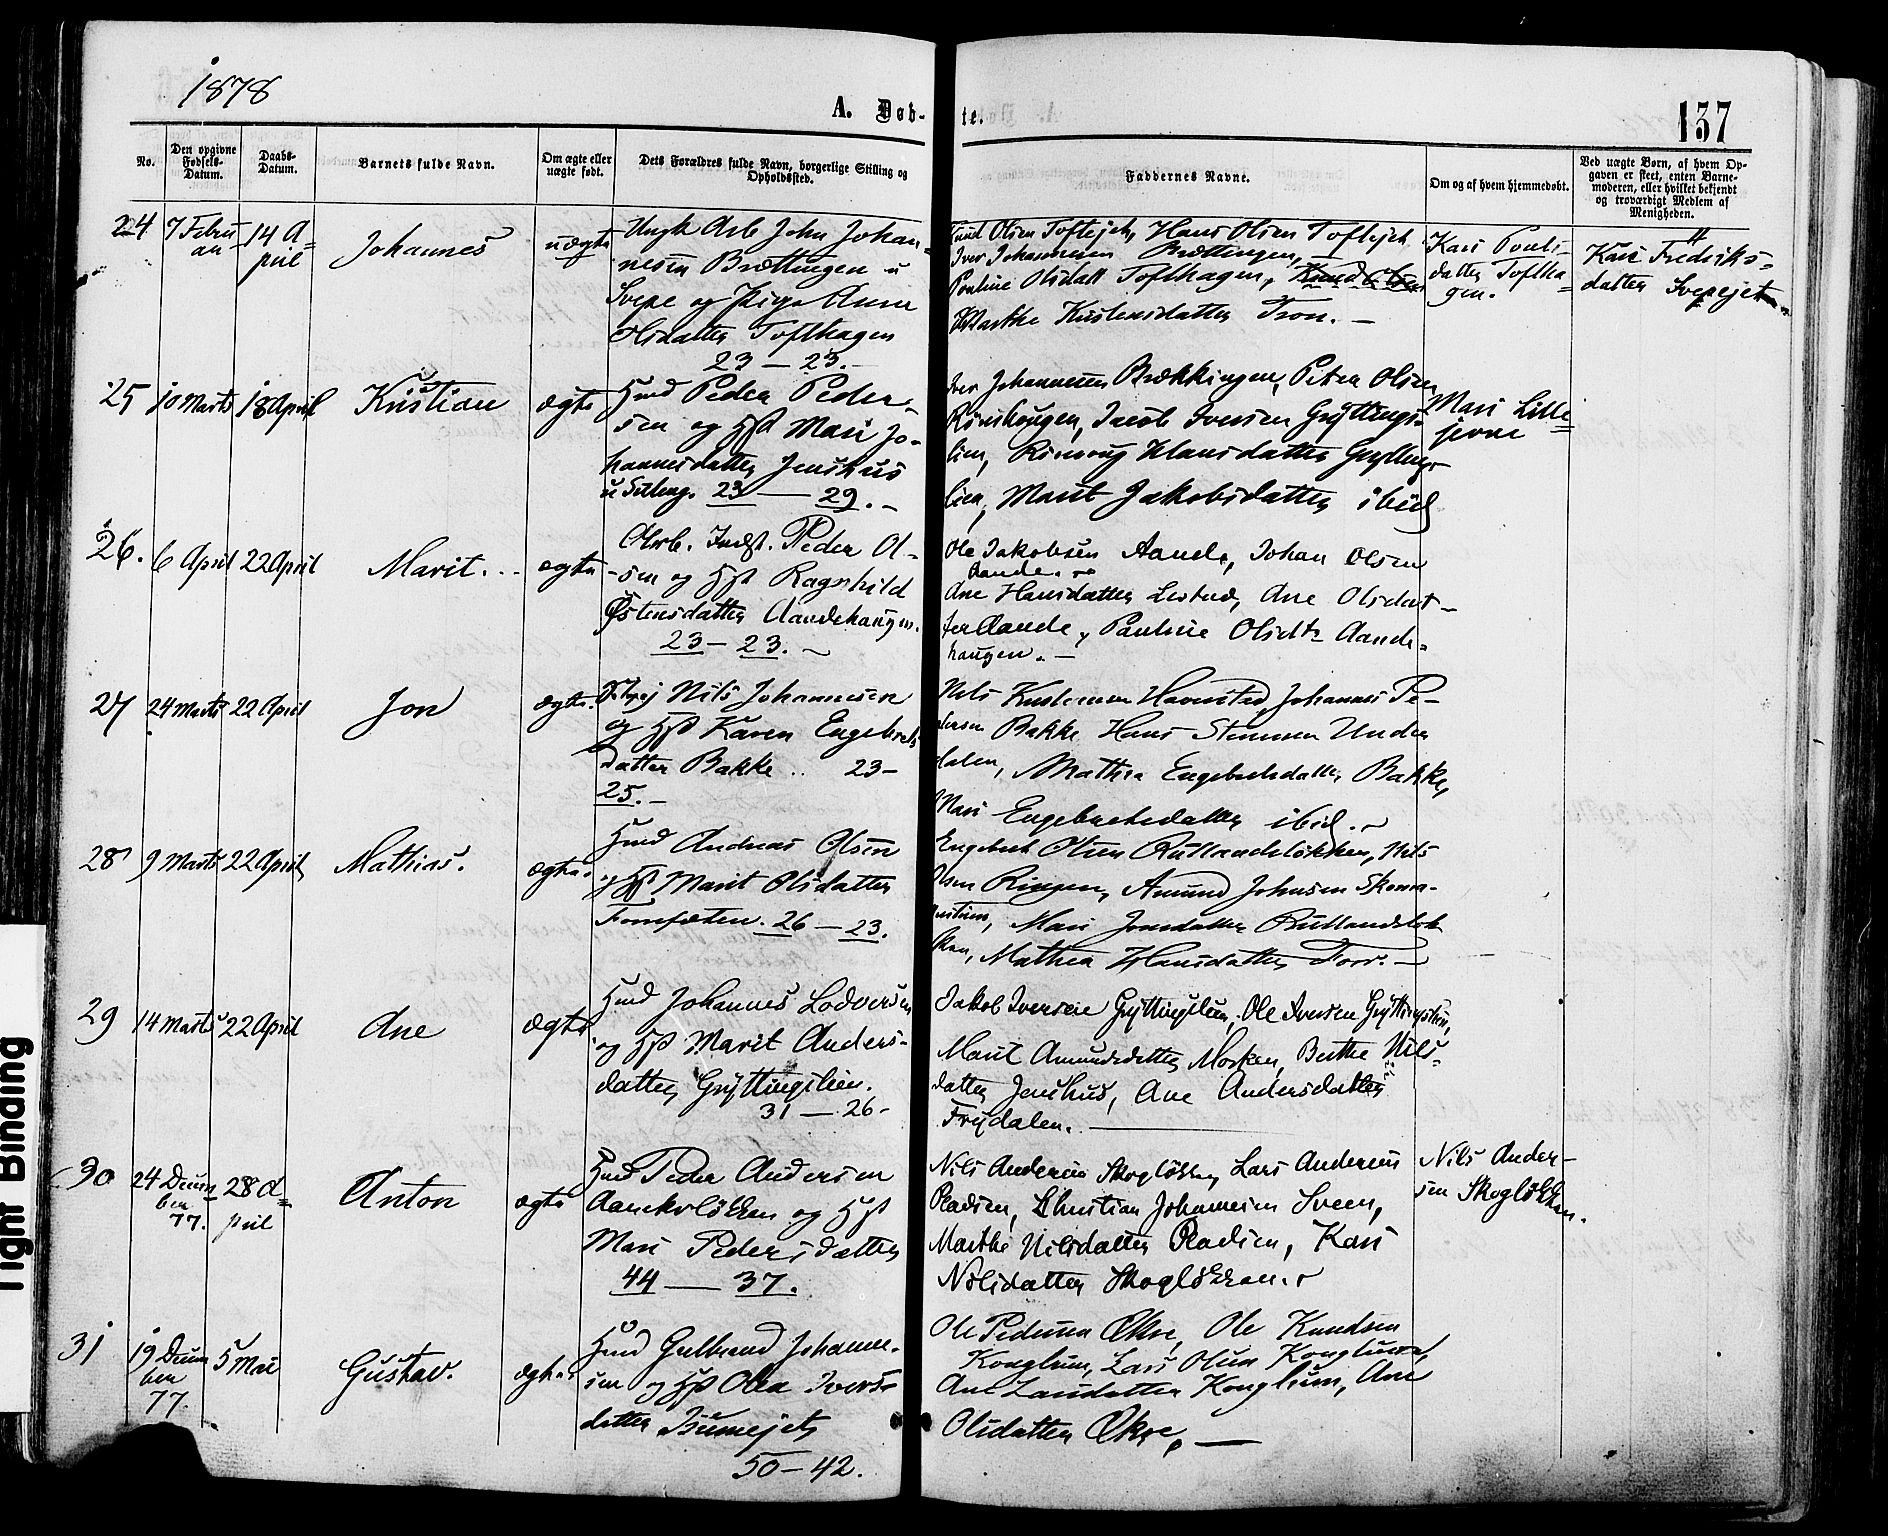 1878
A. Døb-
te.
137
No.
Den opgivne
Fødsels-
Datum.
Daabs-
Datum.
Barnets fulde Navn.
Om ægte eller
uægte født.
Dets Forældres fulde Navn, borgerlige Stilling og
Opholdssted.
Faddernes Navne.
Om og af hvem hjemmedøbt.
Ved uægte Børn, af hvem Op-
gaven er skeet, enten Barne-
moderen, eller hvilket bekjendt
og troværdigt Medlem af
Menigheden.
24
7 Febru
ar
14 A=
pril
Johannes
uægte
Ungk Arb John Johan-
nesen Brættingen u
Svepe og Pige Anne
Olsdatter Tofthagen
23 — 23. —
Knud Olsen Toftejet, Hans Olsen Toftejet
Iver Johannesen Brættingen,
Pauline Olsdatt Tofthagen, Knud Olsen
Marthe Kristensdatter Tron. —
Kari Pouls-
datter Toftha=
gen.
Kari Fredriks=
datter Svepejet
25
10 Marts
18 April
Kristian
ægte
Hmd Peder Peder-
sen og Hst Mari Jo-
hannesdatter Jenshus
23 — 29. —
Iver Johannesen Brækkingen, Peter Olsen
Jacob Iversen Gryttings-
lien, Hansdatter Gryttings-
lien, Marit Jakobsdatter ibid
Mari Lille=
jevne
26.
6 April
22 April
Marit.
ægte
Arb. Indst. Peder Ol-
sen og Hst Ragnhild
Østensdatter Aandehaugen.
23 — 23. —
Ole Jakobsen Aande, Johan Olsen
Aande.
Ane Hansdatter Lestad, Ane Olsdat-
ter Aande, Pauline Olsdtr Aande-
haugen. —
27
24 Marts
22 April
Jon
ægte.
Nils Johannesen
og Hst Karen Engebrets
datter Bakke .. 23 —
25. —
Nils Kristensen Havnstad, Johannes Pe-
dersen Bakke Hans Stensen Under
dalen, Mathea Engebretsdatter Bakke,
Mari Engebretsdatter ibid.
28
9 Marts
22 April
Mathias.
ægte.
Hmd Andreas Olsen
og Hst Marit Olsdatter
26 — 23.
Engebret Olsen Rullandsløkken, Nils
Olsen Ringen, Amund Johnsen Skoma-
Mari Jonsdatter Rullandsløk
ken, Mathea Hansdatter Forr. —
29
14 Marts
22 April
Ane
ægte
Hmd Johannes Lodversen
og Hst Marit Anders-
datter Gryttingslien.
31 — 26 -
Jakob Iversen Gryttingslien, Ole Iversen Gryttingslien,
Marit Amundsdatter Mosken, Berthe Nils-
datter Jenshus, Ane Andersdatter
Frydalen. —
30
24 Decem
ber
77.
28 A=
pril
Anton
ægte
Hmd Peder Andersen
Aandersløkken og Hst
Mari Pedersdatter
44 — 37.
Nils Andersen Skogløkken, Lars Andersen
Pladsen, Christian Johannesen Sveen,
Marthe Nilsdatter Pladsen, Kari
Nilsdatter Skogløkken.
Nils Ander-
sen Skogløkken.
31
19 Decem
ber
77.
5 Mai
Gustav.
ægte
Hmd Gulbrand Johanne-
sen og Hst Olea Ivers-
datter Bsumejet
50 — 42.
Ole Pedersen Økre, Ole Knudsen
Konglum, Lars Olsen Konglum,
Ane Larsdatter Konglum, Ane
Olsdatter Økre, —
Tight Binding